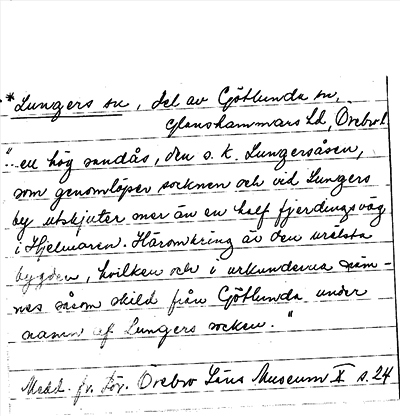 *Lungers sn, del av Götlunda sn,
Glanshammars hd, Örebro l.
"en hög sandås, den s. k. Lungersåsen,
som genomlöper socknen och vid Lungers
by utskjuter mer än en half fjerdingsväg
i Hjelmaren. Häromkring är den urelsta
bygden, hvilken och i urkunderna näm-
nes såsom skild från Götlunda under
namn af Lungers socken."
Medd. fr. För. Örebro Läns Museum X s. 24